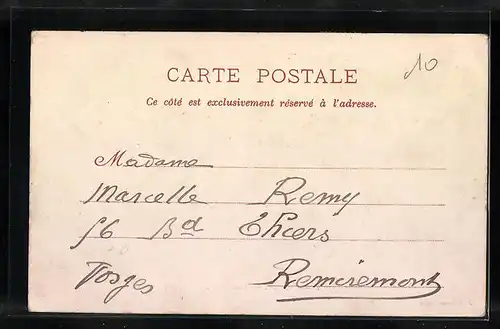 10
CARTE POSTALE
Ce côté est exclusivement réservé à l'adresse.
Madame
Marcelle Remy
56 Bd Thiers
Vosges Remiremont